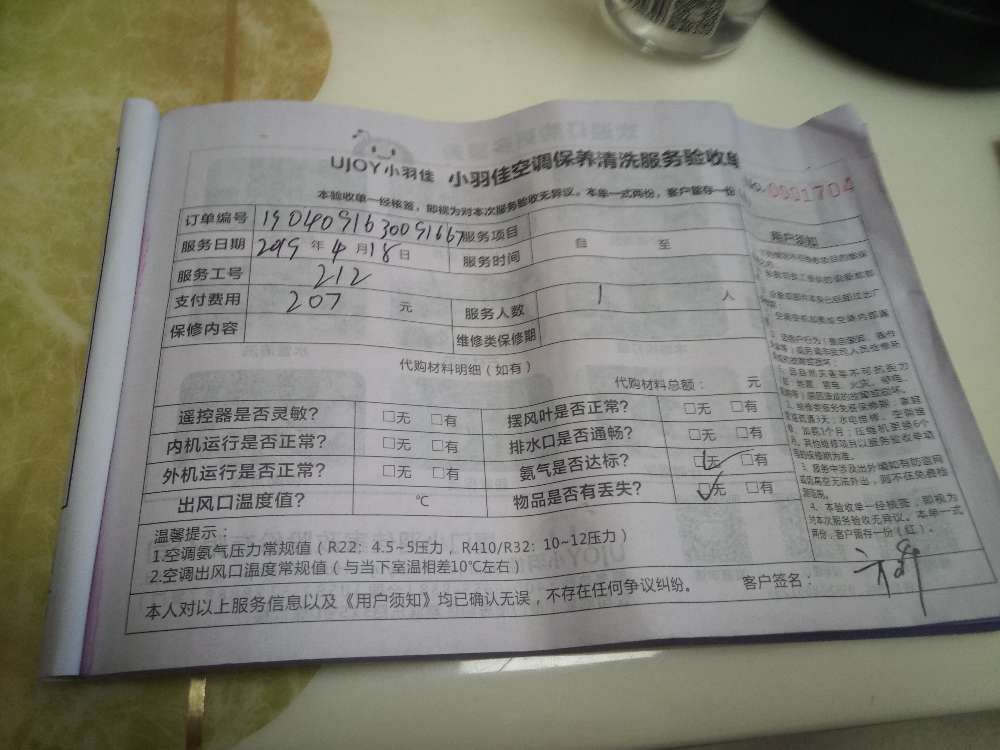 UJOY小羽佳 小羽佳空调保养清洗服务验收单
No. 0001704
本验收单一经核签，即视为对本次服务验收无异议。本单一式两份，客户留存一份
订单编号 1904091630091667 服务项目
服务日期 2019 年 4 月 18 日 服务时间 自 至
服务工号 212
支付费用 207 元 服务人数 1 人
保修内容 维修类保修期
代购材料明细（如有）
代购材料总额： 元
遥控器是否灵敏？ □无 □有 摆风叶是否正常？ □无 □有
内机运行是否正常？ □无 □有 排水口是否通畅？ □无 □有
外机运行是否正常？ □无 □有 氨气是否达标？ □无 □有
出风口温度值？ ℃ 物品是否有丢失？ □无 □有
温馨提示：
1.空调氨气压力常规值（R22：4.5~5压力，R410/R32：10~12压力）
2.空调出风口温度常规值（与当下室温相差10℃左右）
本人对以上服务信息以及《用户须知》均已确认无误，不存在任何争议纠纷。 客户签名：
账户须知
4、本验收单一经核签，即视为
对本次服务验收无异议。本单一式
两份，客户留存一份（红）。